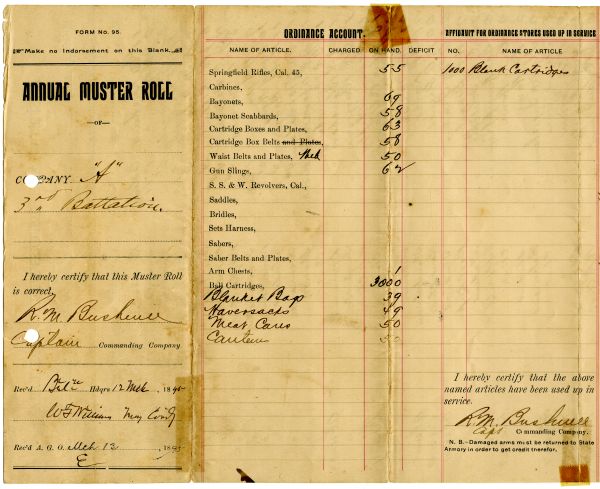 FORM No. 95.
Make no Indorsement on this Blank.
ANNUAL MUSTER ROLL
—OF—
COMPANY "A"
3rd Battalion.
I hereby certify that this Muster Roll
is correct,
R. M. Bushnell
Captain Commanding Company
Rec'd Hdqrs 12 Mch, 1895
W F Williams Maj Comdg
Rec'd A. G. O. Mch 13, 1895
E
ORDINANCE ACCOUNT.
NAME OF ARTICLE. CHARGED ON HAND. DEFICIT
Springfield Rifles, Cal. 45, 55
Carbines,
Bayonets, 69
Bayonet Scabbards, 58
Cartridge Boxes and Plates, 63
Cartridge Box Belts and Plates, 58
Waist Belts and Plates, 50
Gun Slings, 62
S. S. & W. Revolvers, Cal.,
Saddles,
Bridles,
Sets Harness,
Sabers,
Saber Belts and Plates,
Arm Chests, 1
Ball Cartridges, 3000
Blanket Bags 39
Haversacks 49
Meat Cans 50
Canteens 50
AFFIDAVIT FOR ORDINANCE STORES USED UP IN SERVICE
NO. NAME OF ARTICLE
1000 Blank Cartridges
I hereby certify that the above
named articles have been used up in
service.
R. M. Bushnell
Capt Commanding Company.
N. B.—Damaged arms must be returned to State
Armory in order to get credit therefor.